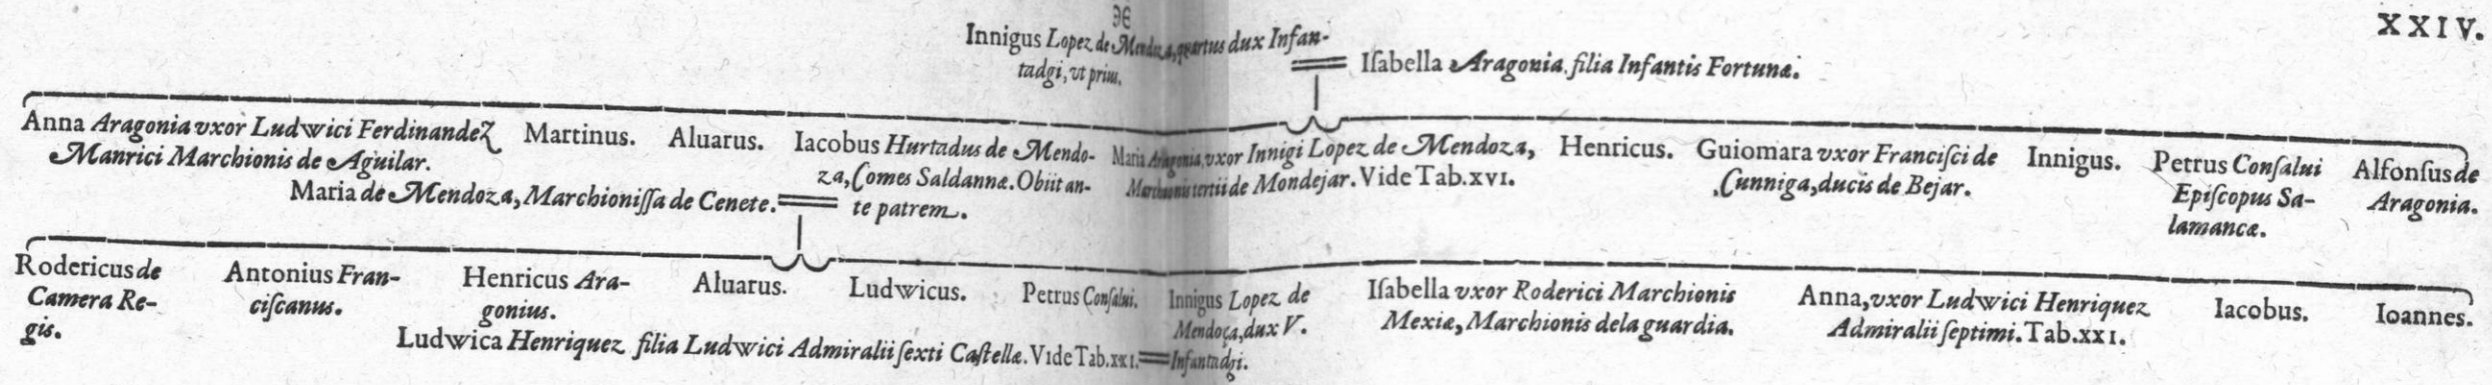 XXIV.
Innigus Lopez de Mendoza, quartus dux Infan-
tadgi, vt prius.
Iſabella Aragonia filia Infantis Fortunæ.
Anna Aragonia vxor Ludwici Ferdinandez
Manrici Marchionis de Aguilar.
Martinus.
Aluarus.
Iacobus Hurtadus de Mendo-
za, Comes Saldannæ. Obiit an-
te patrem.
Maria de Mendoza, Marchioniſſa de Cenete.
Maria Aragonia, vxor Innigi Lopez de Mendoza,
Marchionis tertii de Mondejar. Vide Tab. xvi.
Henricus.
Guiomara vxor Franciſci de
Cunniga, ducis de Bejar.
Innigus.
Petrus Conſalui
Epiſcopus Sa-
lamancæ.
Alfonſus de
Aragonia.
Rodericus de
Camera Re-
gis.
Antonius Fran-
ciſcanus.
Henricus Ara-
gonius.
Aluarus.
Ludwicus.
Petrus Conſalui.
Innigus Lopez de
Mendoça, dux V.
Infantadgi.
Ludwica Henriquez filia Ludwici Admiralii ſexti Caſtellæ. Vide Tab. xxi.
Iſabella vxor Roderici Marchionis
Mexiæ, Marchionis dela guardia.
Anna, vxor Ludwici Henriquez
Admiralii ſeptimi. Tab. xxi.
Iacobus.
Ioannes.